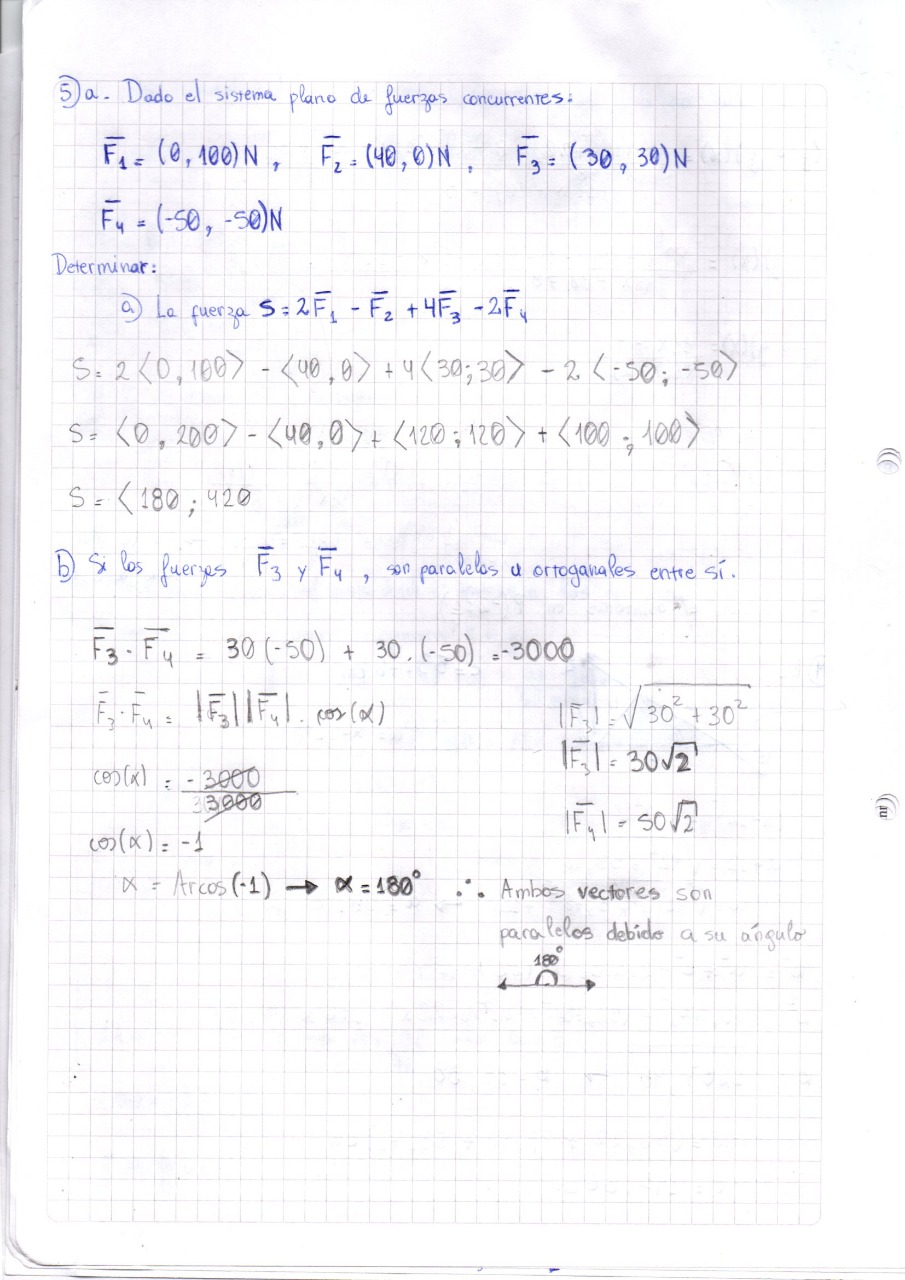 5) a. Dado el sistema plano de fuerzas concurrentes:
F̅₁ = (0, 100)N , F̅₂ = (40, 0)N , F̅₃ = (30, 30)N
F̅₄ = (-50, -50)N
Determinar:
a) La fuerza S = 2F̅₁ - F̅₂ + 4F̅₃ - 2F̅₄
S = 2⟨0, 100⟩ - ⟨40, 0⟩ + 4⟨30; 30⟩ - 2⟨-50; -50⟩
S = ⟨0, 200⟩ - ⟨40, 0⟩ + ⟨120; 120⟩ + ⟨100; 100⟩
S = ⟨180; 420
b) Si los fuerzas F̅₃ y F̅₄, son paralelos u ortoganales entre sí.
F̅₃ · F̅₄ = 30(-50) + 30.(-50) = -3000
F̅₃ · F̅₄ = |F̅₃||F̅₄|. cos(α)
|F̅₃| = √30² + 30²
|F̅₃| = 30√2
cos(α) = -3000
3000
|F̅₄| = 50√2
cos(α) = -1
α = Arcos(-1) → α = 180° ∴ Ambos vectores son
paralelos debido a su ángulo
180°